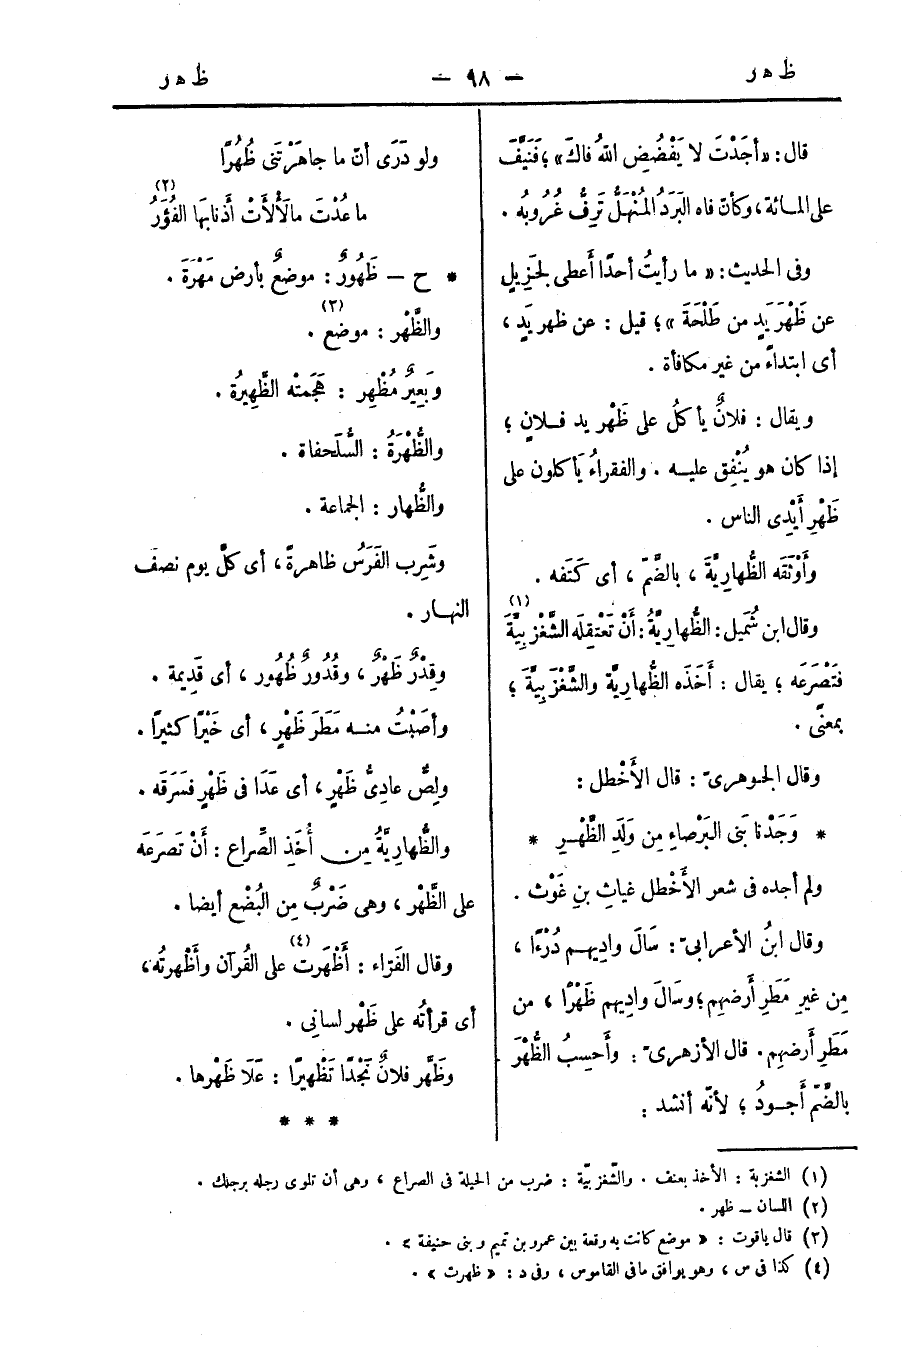 ظ هر
— ٩٨ —
ظ هر
قال: «أجَدْتَ لا يَفْضُضِ اللهُ فاكَ»؛ فَنَيَّفَ
على المـائة، وكأنّ فاه البَرَدُ المُنْهَلُّ تَرِفُّ غُرُوبُه .
وفى الحديث: « ما رأيتُ أحدًا أعطى لجَزِيلٍ
عن ظَهْرِ يَدٍ من طَلْحَةَ »؛ قيل : عن ظهر يَدٍ ،
أى ابتداءً من غير مكافأة .
ويقال : فلانٌ يأكلُ على ظَهْرِ يد فـلان ؛
إذا كان هو يُنْفِق عليـه . والفقراءُ يَأكلون على
ظَهْرِ أَيْدِى الناس .
وأَوْثَقَه الظُّهارِيَّةَ ، بالضَّمّ ، أى كَتَفَه .
وقال ابن شُمَيل: الظُّهارِيَّةُ: أَنْ تَعْتَقِلَه الشَّغْزَبِيَّةَ (١)
فتَصْرَعَه ؛ يقال : أَخَذَه الظُّهارِيَّةَ والشَّغْزَبِيَّةَ ؛
بمعنًى .
وقال الجوهرىّ : قال الأَخْطل :
* وَجَدْنا بَنِى البَرْصاءِ مِن وَلَدِ الظَّهْـرِ *
ولم أجده فى شعر الأَخْطل غياثِ بنِ غَوْث .
وقال ابنُ الأعرابىّ : سَالَ وادِيهـم دُرْءًا ،
مِن غيرِ مَطَرِ أرضهِم؛ وسَالَ وادِيهم ظَهْرًا ، من
مَطَرِ أرضهِم. قال الأزهرىّ : وأَحسِبُ الظُّهْرَ
بالضَّمّ أَجـودُ ؛ لأنّه أنشد :
ولو دَرَى أنّ ما جاهَرْتَنى ظُهُرًا
ما عُدْتَ مالَأْلَأَتْ أَذنابَها الفُؤَرُ (٢)
* ح – ظَهُورٌ : موضعٌ بأرض مَهْرَةَ .
والظَّهْر (٣) : موضع .
وبَعِيرٌ مُظْهِر : هَجَمَتْه الظَّهِيرَةُ .
والظُّهْرَةُ : السُّلَحفاة .
والظُّهار : الجماعة .
وشَرِب الفَرَسُ ظاهرةً ، أى كلَّ يوم نصفَ
النهـار .
وقِدْرٌ ظَهْرٌ ، وقُدُورٌ ظُهُور ، أى قَدِيمة .
وأصَبْتُ منـه مَطَرَ ظَهْرٍ ، أى خَيْرًا كثيرًا .
ولِصٌّ عادِىُّ ظَهْرٍ ، أى عَدَا فى ظَهْرٍ فسَرَقَه .
والظُّهارِيَّةُ مِن أُخَذِ الصِّراع : أَنْ تَصرَعَه
على الظَّهْر ، وهى ضَرْبٌ مِن البُضْع أيضا .
وقال الفَرّاء : أَظْهَرت (٤) على القُرآن وأَظْهرتُه،
أى قرأتُه على ظَهْر لسانِى .
وظَهَّر فلانٌ نَجْدًا تَظْهيرًا : عَلَا ظَهْرها .
* * *
(١) الشغزبة : الأخذ بعنف . والشّغزبيّة : ضرب من الحيلة فى الصراع ، وهى أن تلوى رجله برجلك .
(٢) اللسان – ظهر .
(٣) قال ياقوت : « موضع كانت به وقعة بين عمرو بن تميم وبنى حنيفة » .
(٤) كذا فى س ، وهو يوافق مافى القاموس ، وفى د : « ظهرت » .